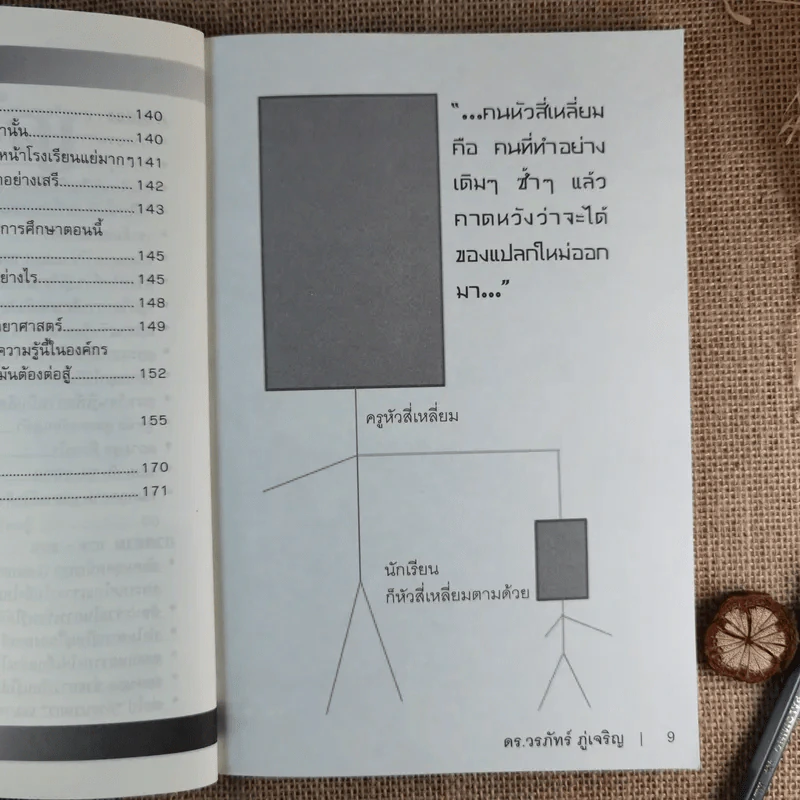 140
านั้น 140
หน้าโรงเรียนแย่มากๆ 141
าอย่างเสรี 142
143
การศึกษาตอนนี้
145
ย่างไร 145
148
ยาศาสตร์ 149
ความรู้นี้ในองค์กร
มันต้องต่อสู้ 152
155
170
171
"...คนหัวสี่เหลี่ยม
คือ คนที่ทำอย่าง
เดิมๆ ซ้ำๆ แล้ว
คาดหวังว่าจะได้
ของแปลกใหม่ออก
มา..."
ครูหัวสี่เหลี่ยม
นักเรียน
ก็หัวสี่เหลี่ยมตามด้วย
ดร.วรภัทร์ ภู่เจริญ | 9